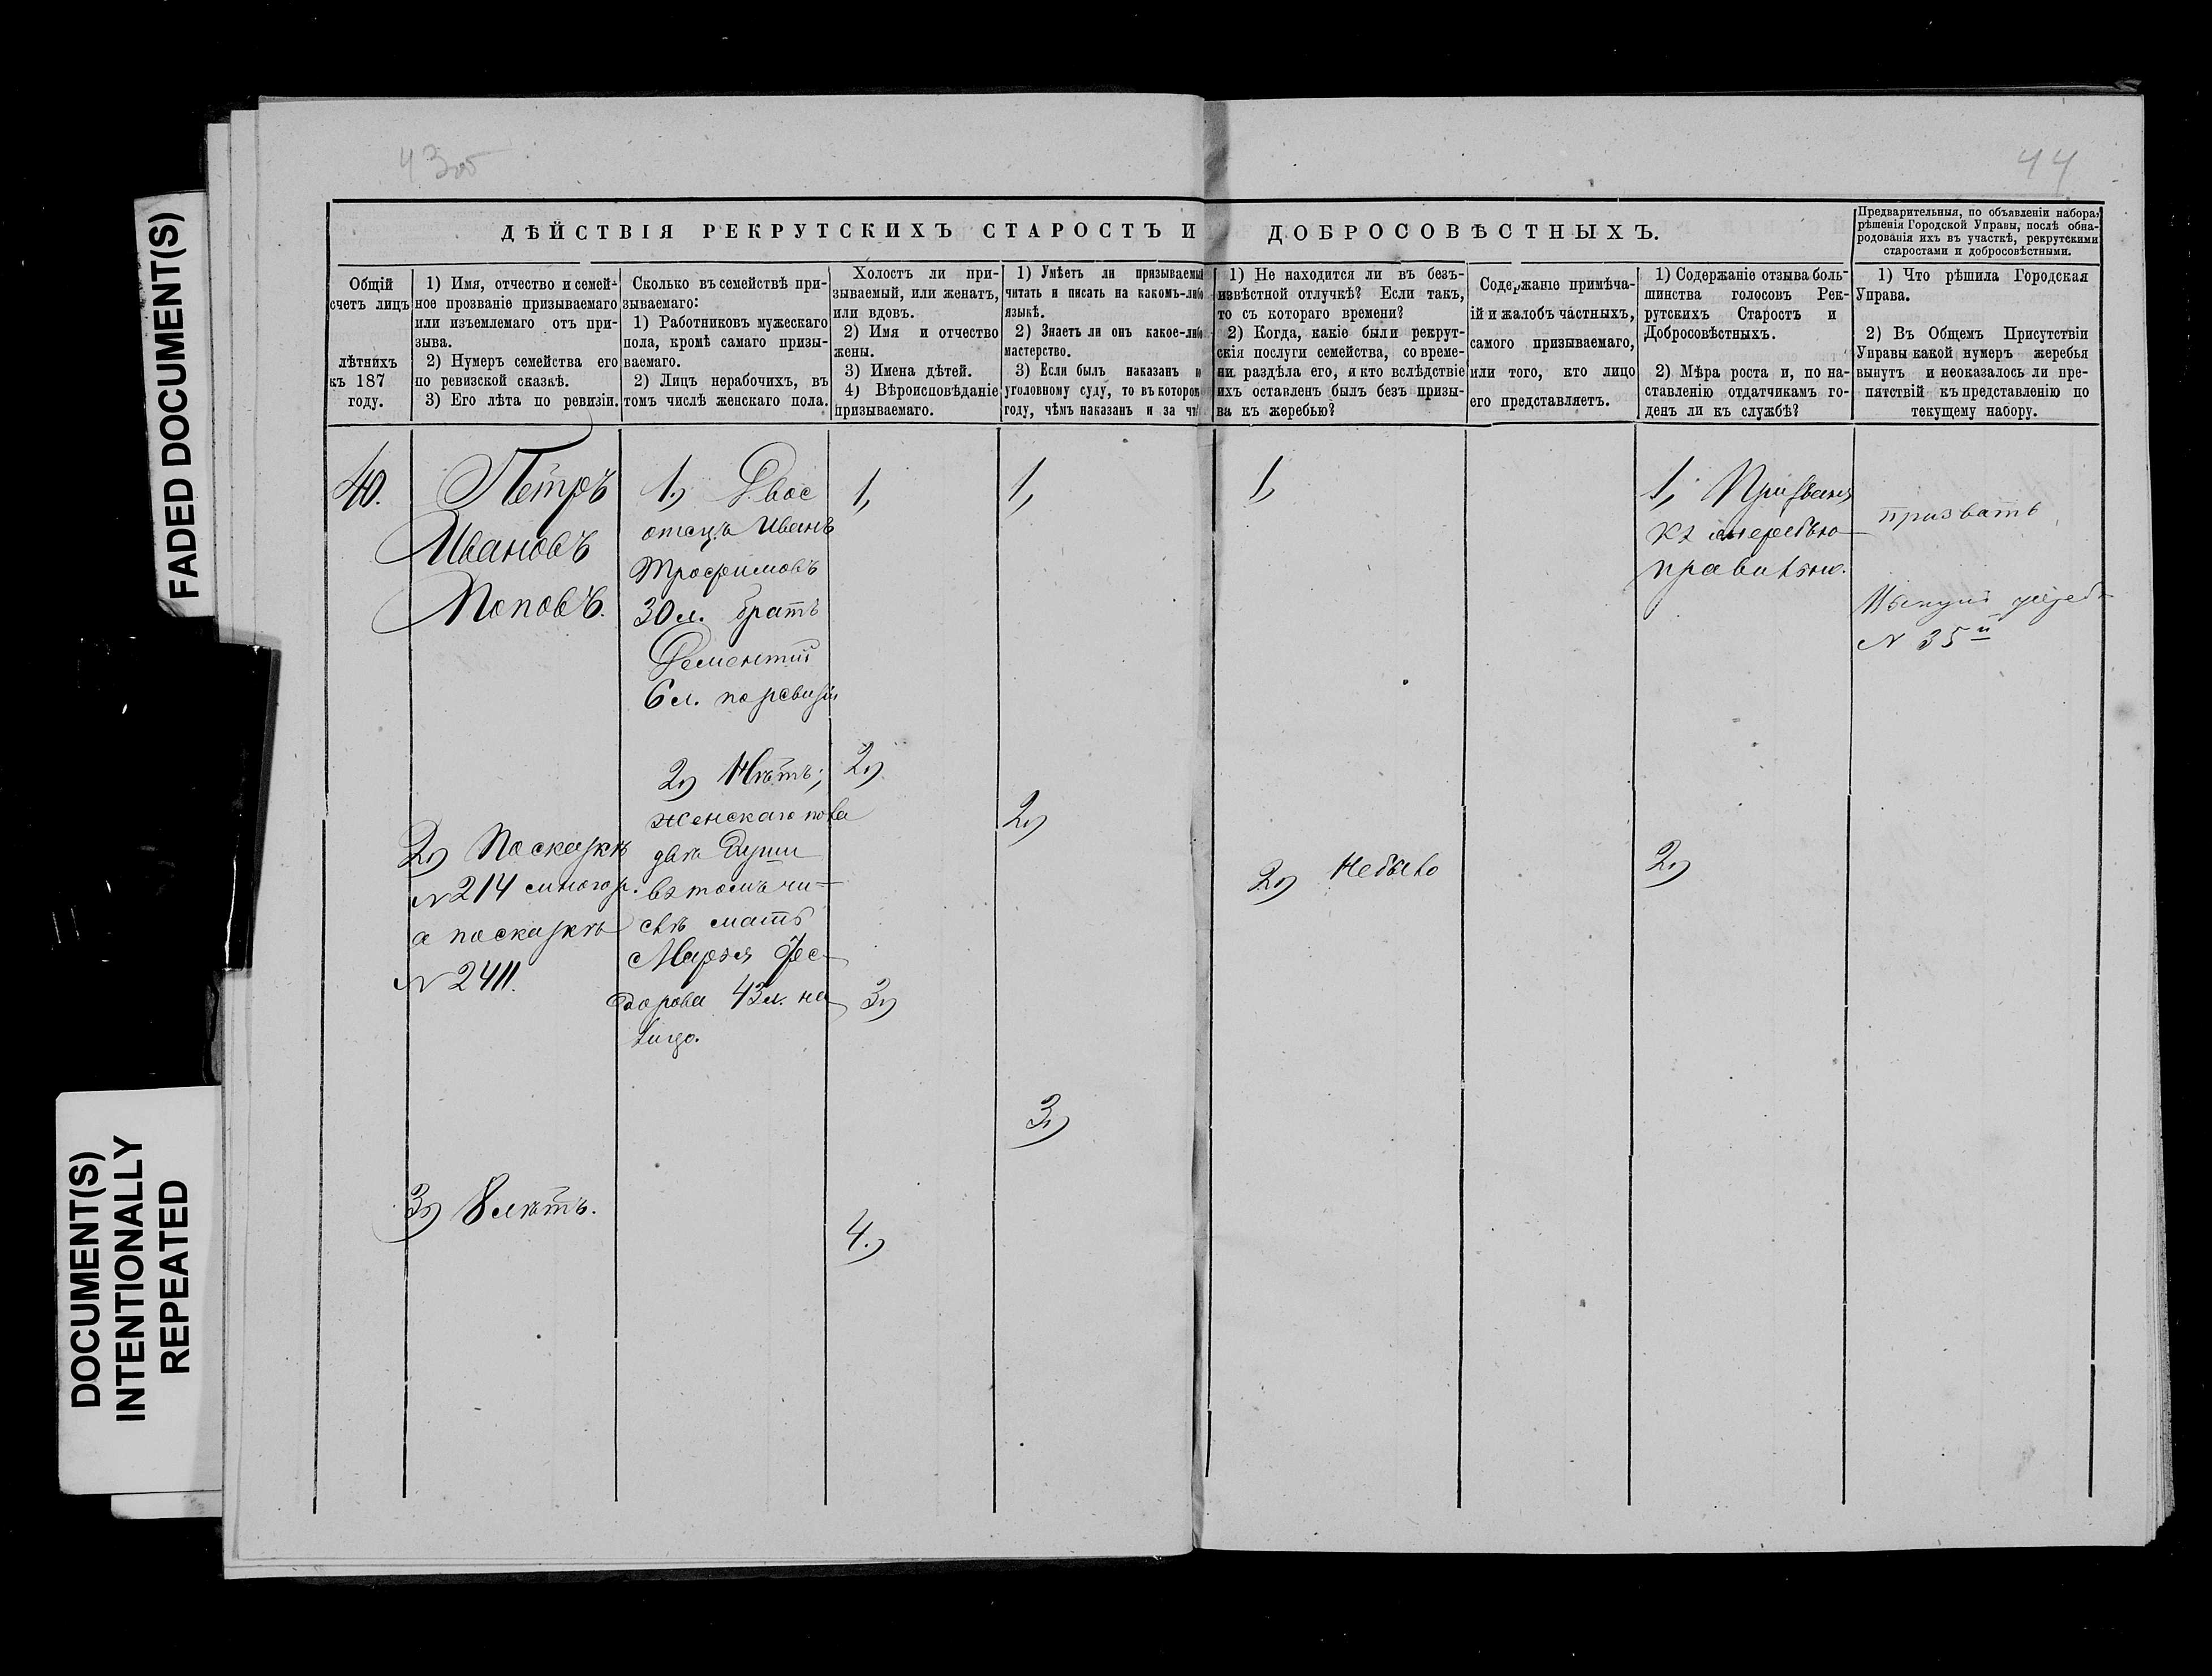 43об
44
FADED DOCUMENT(S)
DOCUMENT(S)
INTENTIONALLY
REPEATED
ДѢЙСТВІЯ РЕКРУТСКИХЪ СТАРОСТЪ И ДОБРОСОВѢСТНЫХЪ.
Предварительныя, по объявленіи набора,
рѣшенія Городской Управы, послѣ обна-
родованія ихъ въ участкѣ, рекрутскими
старостами и добросовѣстными.
Общій
счетъ лицъ
лѣтнихъ
къ 187
году.
1) Имя, отчество и семей-
ное прозваніе призываемаго
или изъемлемаго отъ при-
зыва.
2) Нумеръ семейства его
по ревизской сказкѣ.
3) Его лѣта по ревизіи.
Сколько въ семействѣ при-
зываемаго:
1) Работниковъ мужескаго
пола, кромѣ самаго призы-
ваемаго.
2) Лицъ нерабочихъ, въ
томъ числѣ женскаго пола.
Холостъ ли при-
зываемый, или женатъ,
или вдовъ.
2) Имя и отчество
жены.
3) Имена дѣтей.
4) Вѣроисповѣданіе
призываемаго.
1) Умѣетъ ли призываемый
читать и писать на какомъ-либо
языкѣ.
2) Знаетъ ли онъ какое-либо
мастерство.
3) Если былъ наказанъ и
уголовному суду, то въ которо
году, чѣмъ наказанъ и за чт
1) Не находится ли въ безъ-
извѣстной отлучкѣ? Если такъ,
то съ котораго времени?
2) Когда, какіе были рекрут-
скія послуги семейства, со време-
ни раздѣла его, и кто вслѣдствіе
ихъ оставленъ былъ безъ призы-
ва къ жеребью?
Содержаніе примѣча-
ій и жалобъ частныхъ,
самого призываемаго,
или того, кто лицо
его представляетъ.
1) Содержаніе отзыва боль-
шинства голосовъ Рек-
рутскихъ Старостъ и
Добросовѣстныхъ.
2) Мѣра роста и, по на-
ставленію отдатчикамъ го-
денъ ли къ службѣ?
1) Что рѣшила Городская
Управа.
2) Въ Общемъ Присутствіи
Управы какой нумеръ жеребья
вынутъ и неоказалось ли пре-
пятствій къ представленію по
текущему набору.
40.
Петръ
Ивановъ
Поповъ.
2) По сказкѣ
№ 214
а по сказкѣ
№ 2411.
3) 8 лѣтъ.
1) Двое
отецъ Иванъ
Трофимовъ
30 л. братъ
Дементій
6 л. по ревизіи
2) Нѣтъ;
женскаго пола
двѣ души
въ томъ чи-
слѣ мать
Марья Фео-
дорова 43 л. на
лицо.
1,
2)
3)
4.)
1,
2)
3)
1,
2) Небыло
1, Призвань
къ жеребью
правильно.
2)
призвать
Вынулъ жереб
№ 35й